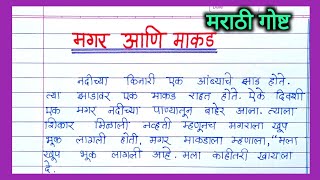 मराठी गोष्ट
मगर आणि माकड
नदीच्या किनारी एक आंब्याचे झाड होते.
त्या झाडावर एक माकड राहत होते. ऐके दिवशी
एक मगर नदीच्या पाण्यातून बाहेर आला. त्याला
शिकार मिळाली नव्हती म्हणूनच मगराला खूप
भूक लागली होती. मगर माकडाला म्हणाला, "मला
खूप भूक लागली आहे. मला काहीतरी खायला
दे.